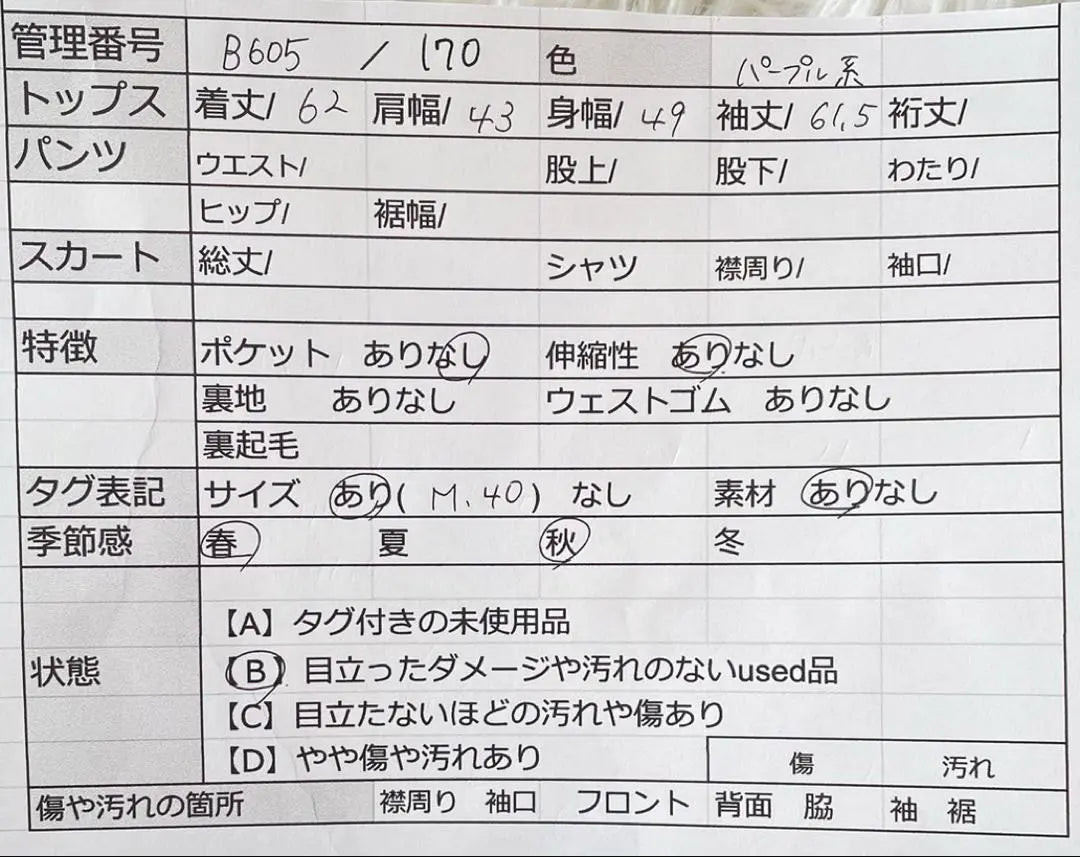 管理番号 B605 / 170 色 パープル系
トップス 着丈/ 62 肩幅/ 43 身幅/ 49 袖丈/ 61.5 裄丈/
パンツ ウエスト/ 股上/ 股下/ わたり/
ヒップ/ 裾幅/
スカート 総丈/ シャツ 襟周り/ 袖口/
特徴 ポケット ありなし 伸縮性 ありなし
裏地 ありなし ウェストゴム ありなし
裏起毛
タグ表記 サイズ あり( M.40 ) なし 素材 ありなし
季節感 春 夏 秋 冬
【A】タグ付きの未使用品
状態 【B】目立ったダメージや汚れのないused品
【C】目立たないほどの汚れや傷あり
【D】やや傷や汚れあり 傷 汚れ
傷や汚れの箇所 襟周り 袖口 フロント 背面 脇 袖 裾